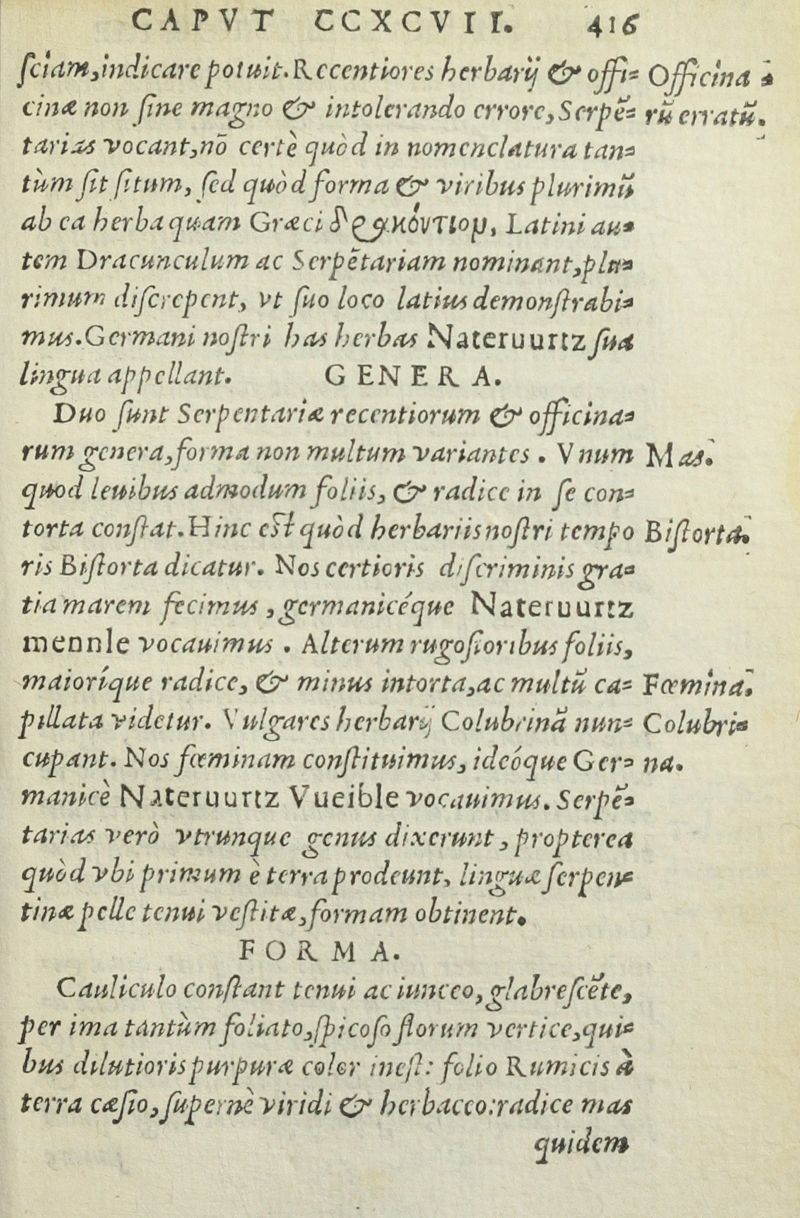 CAPVT CCXCVII. 416
ſciam, indicare potuit. Recentiores herbarij & offi=
cinæ non ſine magno & intolerando errore, Serpẽ=
tarias vocant, nõ certè quòd in nomenclatura tan=
tùm ſit ſitum, ſed quòd forma & viribus plurimũ
ab ea herba quam Græci δρακόντιομ, Latini au=
tem Dracunculum ac Serpẽtariam nominant, plu=
rimum diſcrepent, vt ſuo loco latius demonſtrabi=
mus. Germani noſtri has herbas Nateruurtz ſua
lingua appellant. GENERA.
Duo ſunt Serpentariæ recentiorum & officina=
rum genera, forma non multum variantes. Vnum
quod leuibus admodum foliis, & radice in ſe con=
torta conſtat. Hinc eſt quòd herbariis noſtri tempo
ris Biſtorta dicatur. Nos certioris diſcriminis gra=
tia marem fecimus, germanicéque Nateruurtz
mennle vocauimus. Alterum rugoſioribus foliis,
maioríque radice, & minus intorta, ac multũ ca=
pillata videtur. Vulgares herbarij Colubrinã nun=
cupant. Nos fœminam conſtituimus, ideóque Ger=
manicè Nateruurtz Vueible vocauimus. Serpẽ=
tarias verò vtrunque genus dixerunt, propterea
quòd vbi primum è terra prodeunt, linguæ ſerpen=
tinæ pelle tenui veſtitæ, formam obtinent.
FORMA.
Cauliculo conſtant tenui ac iunceo, glabreſcẽte,
per ima tantùm foliato, ſpicoſo florum vertice, qui=
bus dilutioris purpuræ color ineſt: folio Rumicis à
terra cæſio, ſupernè viridi & herbaceo: radice mas
quidem
Officina
rũ erratũ.
Mas.
Biſtorta.
Fœmina.
Colubri=
na.